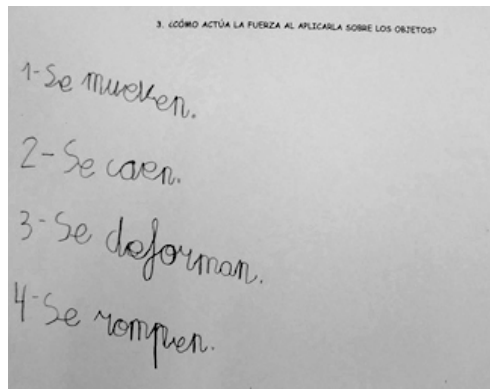 3. ¿CÓMO ACTÚA LA FUERZA AL APLICARLA SOBRE LOS OBJETOS?
1-Se mueven.
2-Se caen.
3-Se deforman.
4-Se rompen.